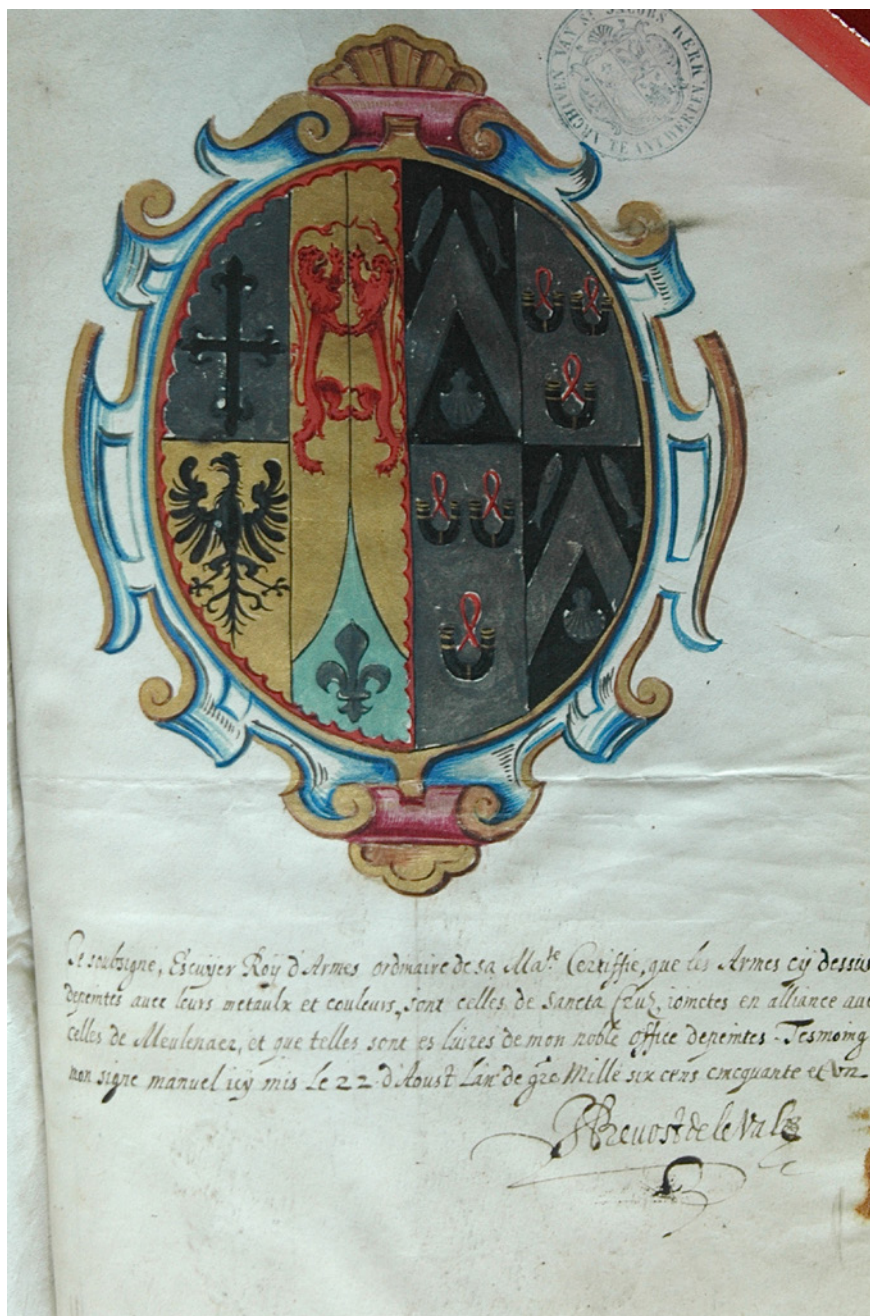 ARCHIVEN VAN St JACOBS KERK TE ANTWERPEN
Je soubsigné, Escuijer Roÿ d'Armes ordinaire de sa Ma.te Certiffie, que les Armes cÿ dessus
depeintes avec leurs metaulx et couleurs, sont celles de Sancta Cruz, iomctes en alliance au
celles de Meulenaer, et que telles sont es livres de mon noble office depeintes - Tesmoing
mon signe manuel icÿ mis le 22 d'Aoust l'an de gre Mille six cens cincquante et un
Prevost de le Val